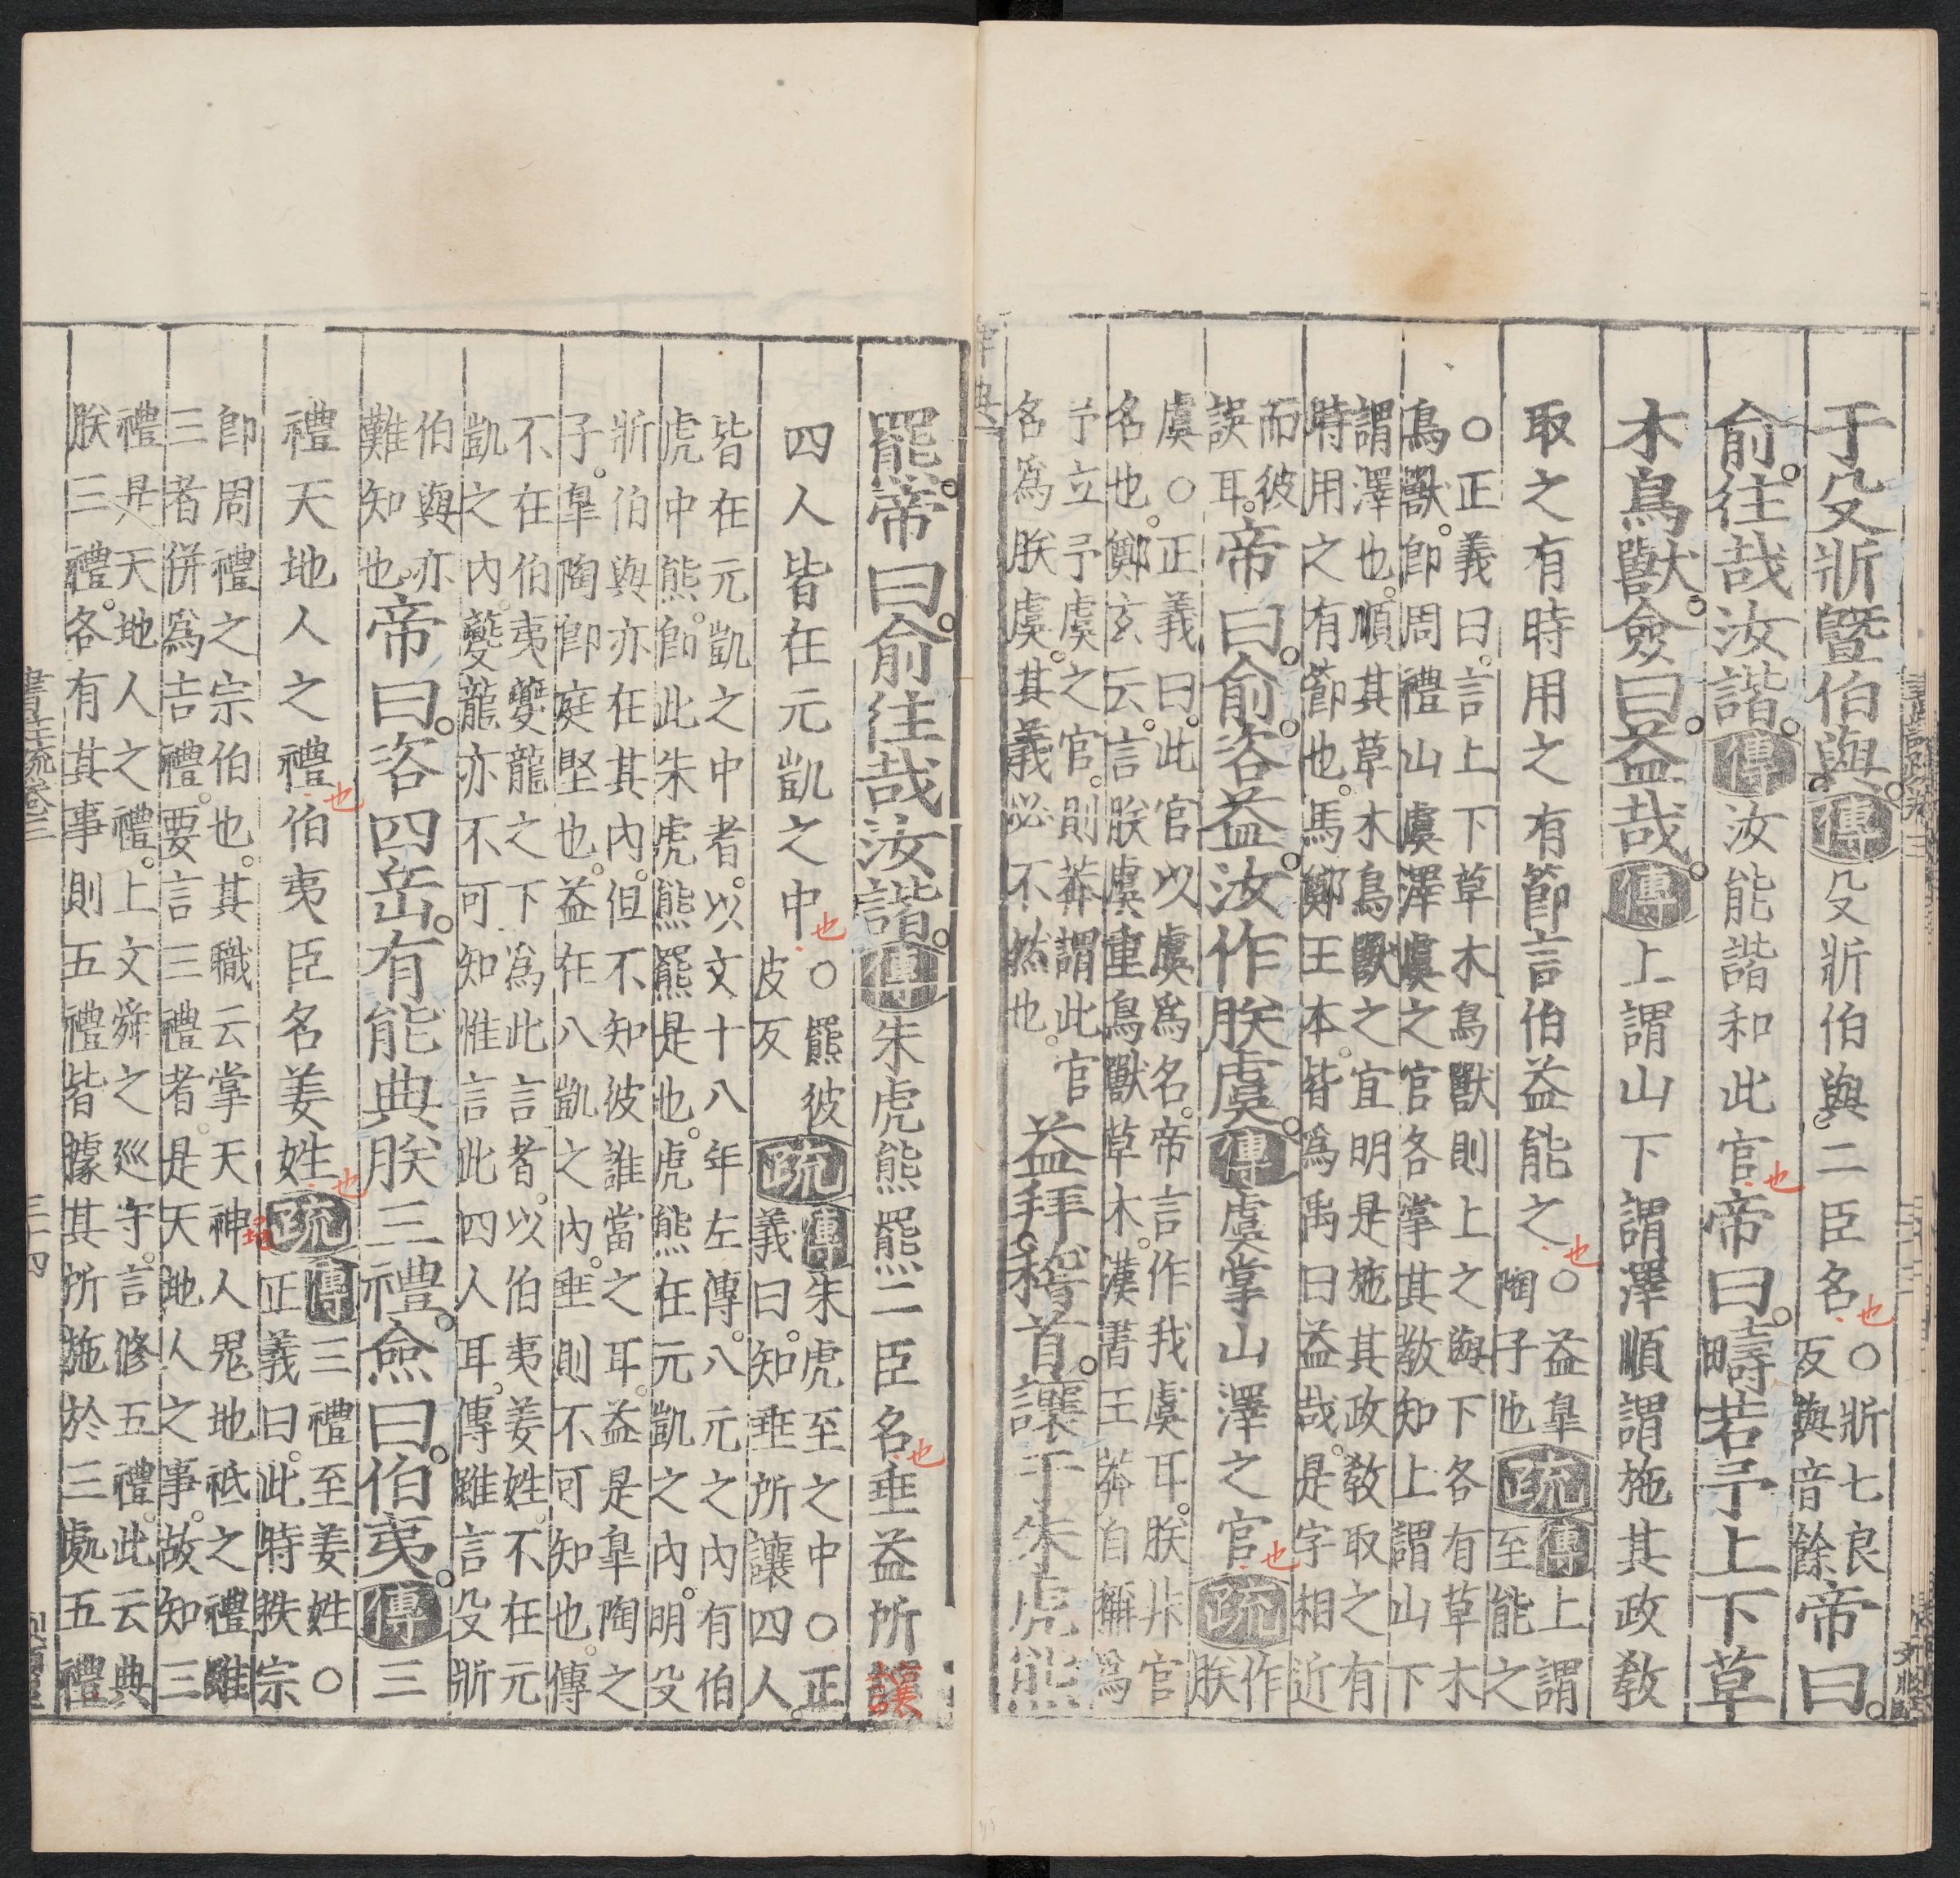 于殳斨暨伯與傳殳斨伯與二臣名也○斨七良反與音餘帝曰
俞往哉汝諧傳汝能諧和此官也帝曰疇若予上下草
木鳥獸僉曰益哉傳上謂山下謂澤順謂施其政敎
取之有時用之有節言伯益能之也○益臯陶子也疏傳上謂至能之
○正義曰言上下草木鳥獸則上之與下各有草木
鳥獸卽周禮山虞澤虞之官各掌其敎知上謂山下
謂澤也順其草木鳥獸之宜明是施其政敎取之有
時用之有節也馬鄭王本皆爲禹曰益哉是字相近
而彼誤耳帝曰俞咨益汝作朕虞傳虞掌山澤之官也疏作朕
虞○正義曰此官以虞爲名帝言作我虞耳朕非官
名也鄭玄云言朕虞重鳥獸草木漢書王莽自稱爲
予立予虞之官則莽謂此官
名爲朕虞其義必不然也益拜稽首讓于朱虎熊
羆帝曰俞往哉汝諧傳朱虎熊羆二臣名也垂益所讓
四人皆在元凱之中也○羆彼皮反疏傳朱虎至之中○正義曰知垂所讓四人
皆在元凱之中者以文十八年左傳八元之內有伯
虎中熊卽此朱虎熊羆是也虎熊在元凱之內明殳
斨伯與亦在其內但不知彼誰當之耳益是臯陶之
子臯陶卽庭堅也益在八凱之內垂則不可知也傳
不在伯夷夔龍之下爲此言者以伯夷姜姓不在元
凱之內夔龍亦不可知惟言此四人耳傳雖言殳斨
伯與亦
難知也帝曰咨四岳有能典朕三禮僉曰伯夷傳三
禮天地人之禮也伯夷臣名姜姓也疏傳三禮至姜姓○正義曰此時秩宗
卽周禮之宗伯也其職云掌天神人鬼地祇之禮雖
三者併爲吉禮要言三禮者是天地人之事故知三
禮是天地人之禮上文舜之巡守言修五禮此云典
朕三禮各有其事則五禮皆據其所施於三處五禮
書注疏卷三
三十四